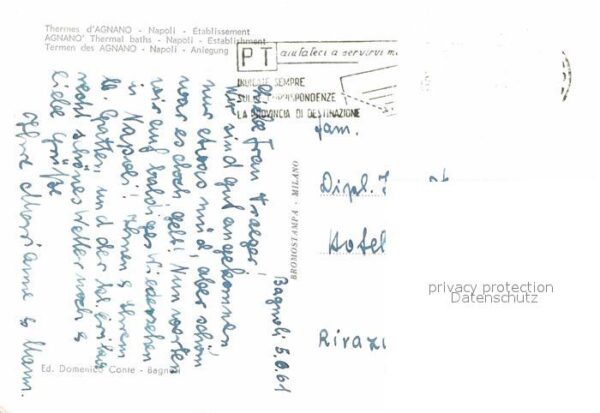 Thermes d'AGNANO - Napoli - Établissement
AGNANO' Thermal baths - Napoli - Establishment
Termen des AGNANO - Napoli - Anlegung
PT aiutateci a servirvi m
INDICATE SEMPRE
SULLE CORRISPONDENZE
LA PROVINCIA DI DESTINAZIONE
Bagnoli 5.9.61
Liebe Frau Traeger!
Wir sind gut angekommen
nur etwas müd, aber schön
war es doch, gelt! Nun warten
wir auf baldiges Wiedersehen
in Napoli! Ihnen & Ihrem
lb. Gatten, und der
recht schönes Wetter noch &
liebe Grüße
Ihre Marianne & Mann.
BROMOSTAMPA - MILANO
Fam.
Dipl.
Hotel
Riva
privacy protection
Datenschutz
Ed. Domenico Conte - Bagn